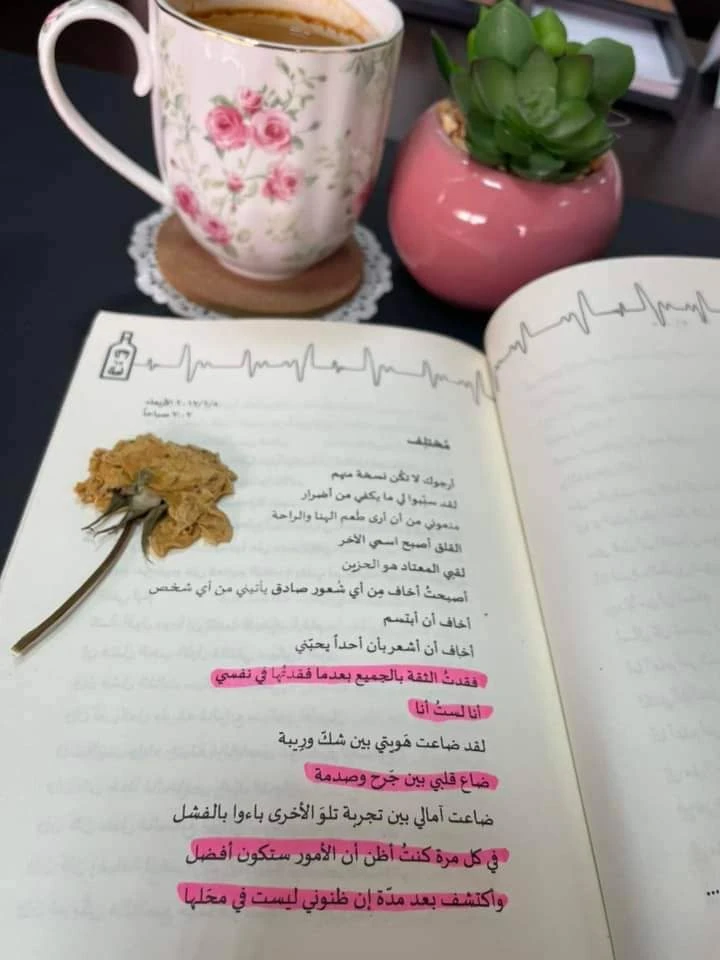 الأربعاء
٣:٠٣ صباحاً
مُختلِف
أرجوك لا تكُن نسخة منهم
لقد سبّبوا لي ما يكفي من أضرار
منعوني من أن أرى طعم الهنا والراحة
القلق أصبح اسمي الآخر
لقبي المعتاد هو الحزين
أصبحتُ أخاف مِن أي شُعور صادق يأتيني من أي شخص
أخاف أن أبتسم
أخاف أن أشعر بأن أحداً يحبّني
فقدتُ الثقة بالجميع بعدما فقدتُها في نفسي
أنا لستُ أنا
لقد ضاعت هَويتي بين شكّ ورِيبة
ضاع قلبي بين جَرح وصدمة
ضاعت آمالي بين تجرِبة تلوَ الأخرى باءوا بالفشل
في كل مرة كنتُ أظن أن الأمور ستكون أفضل
وأكتشف بعد مدّة إن ظنوني ليست في محَلها
...